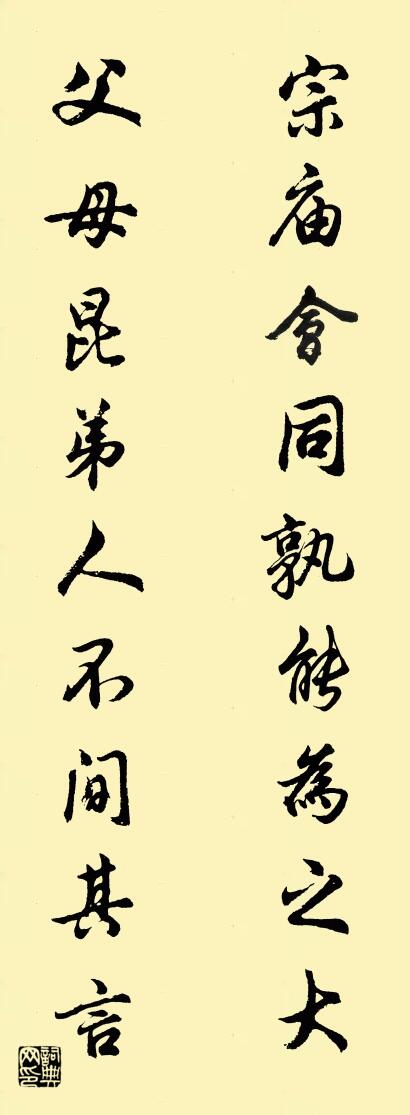 宗庙會同孰能為之大
父母昆弟人不间其言
詞典网印